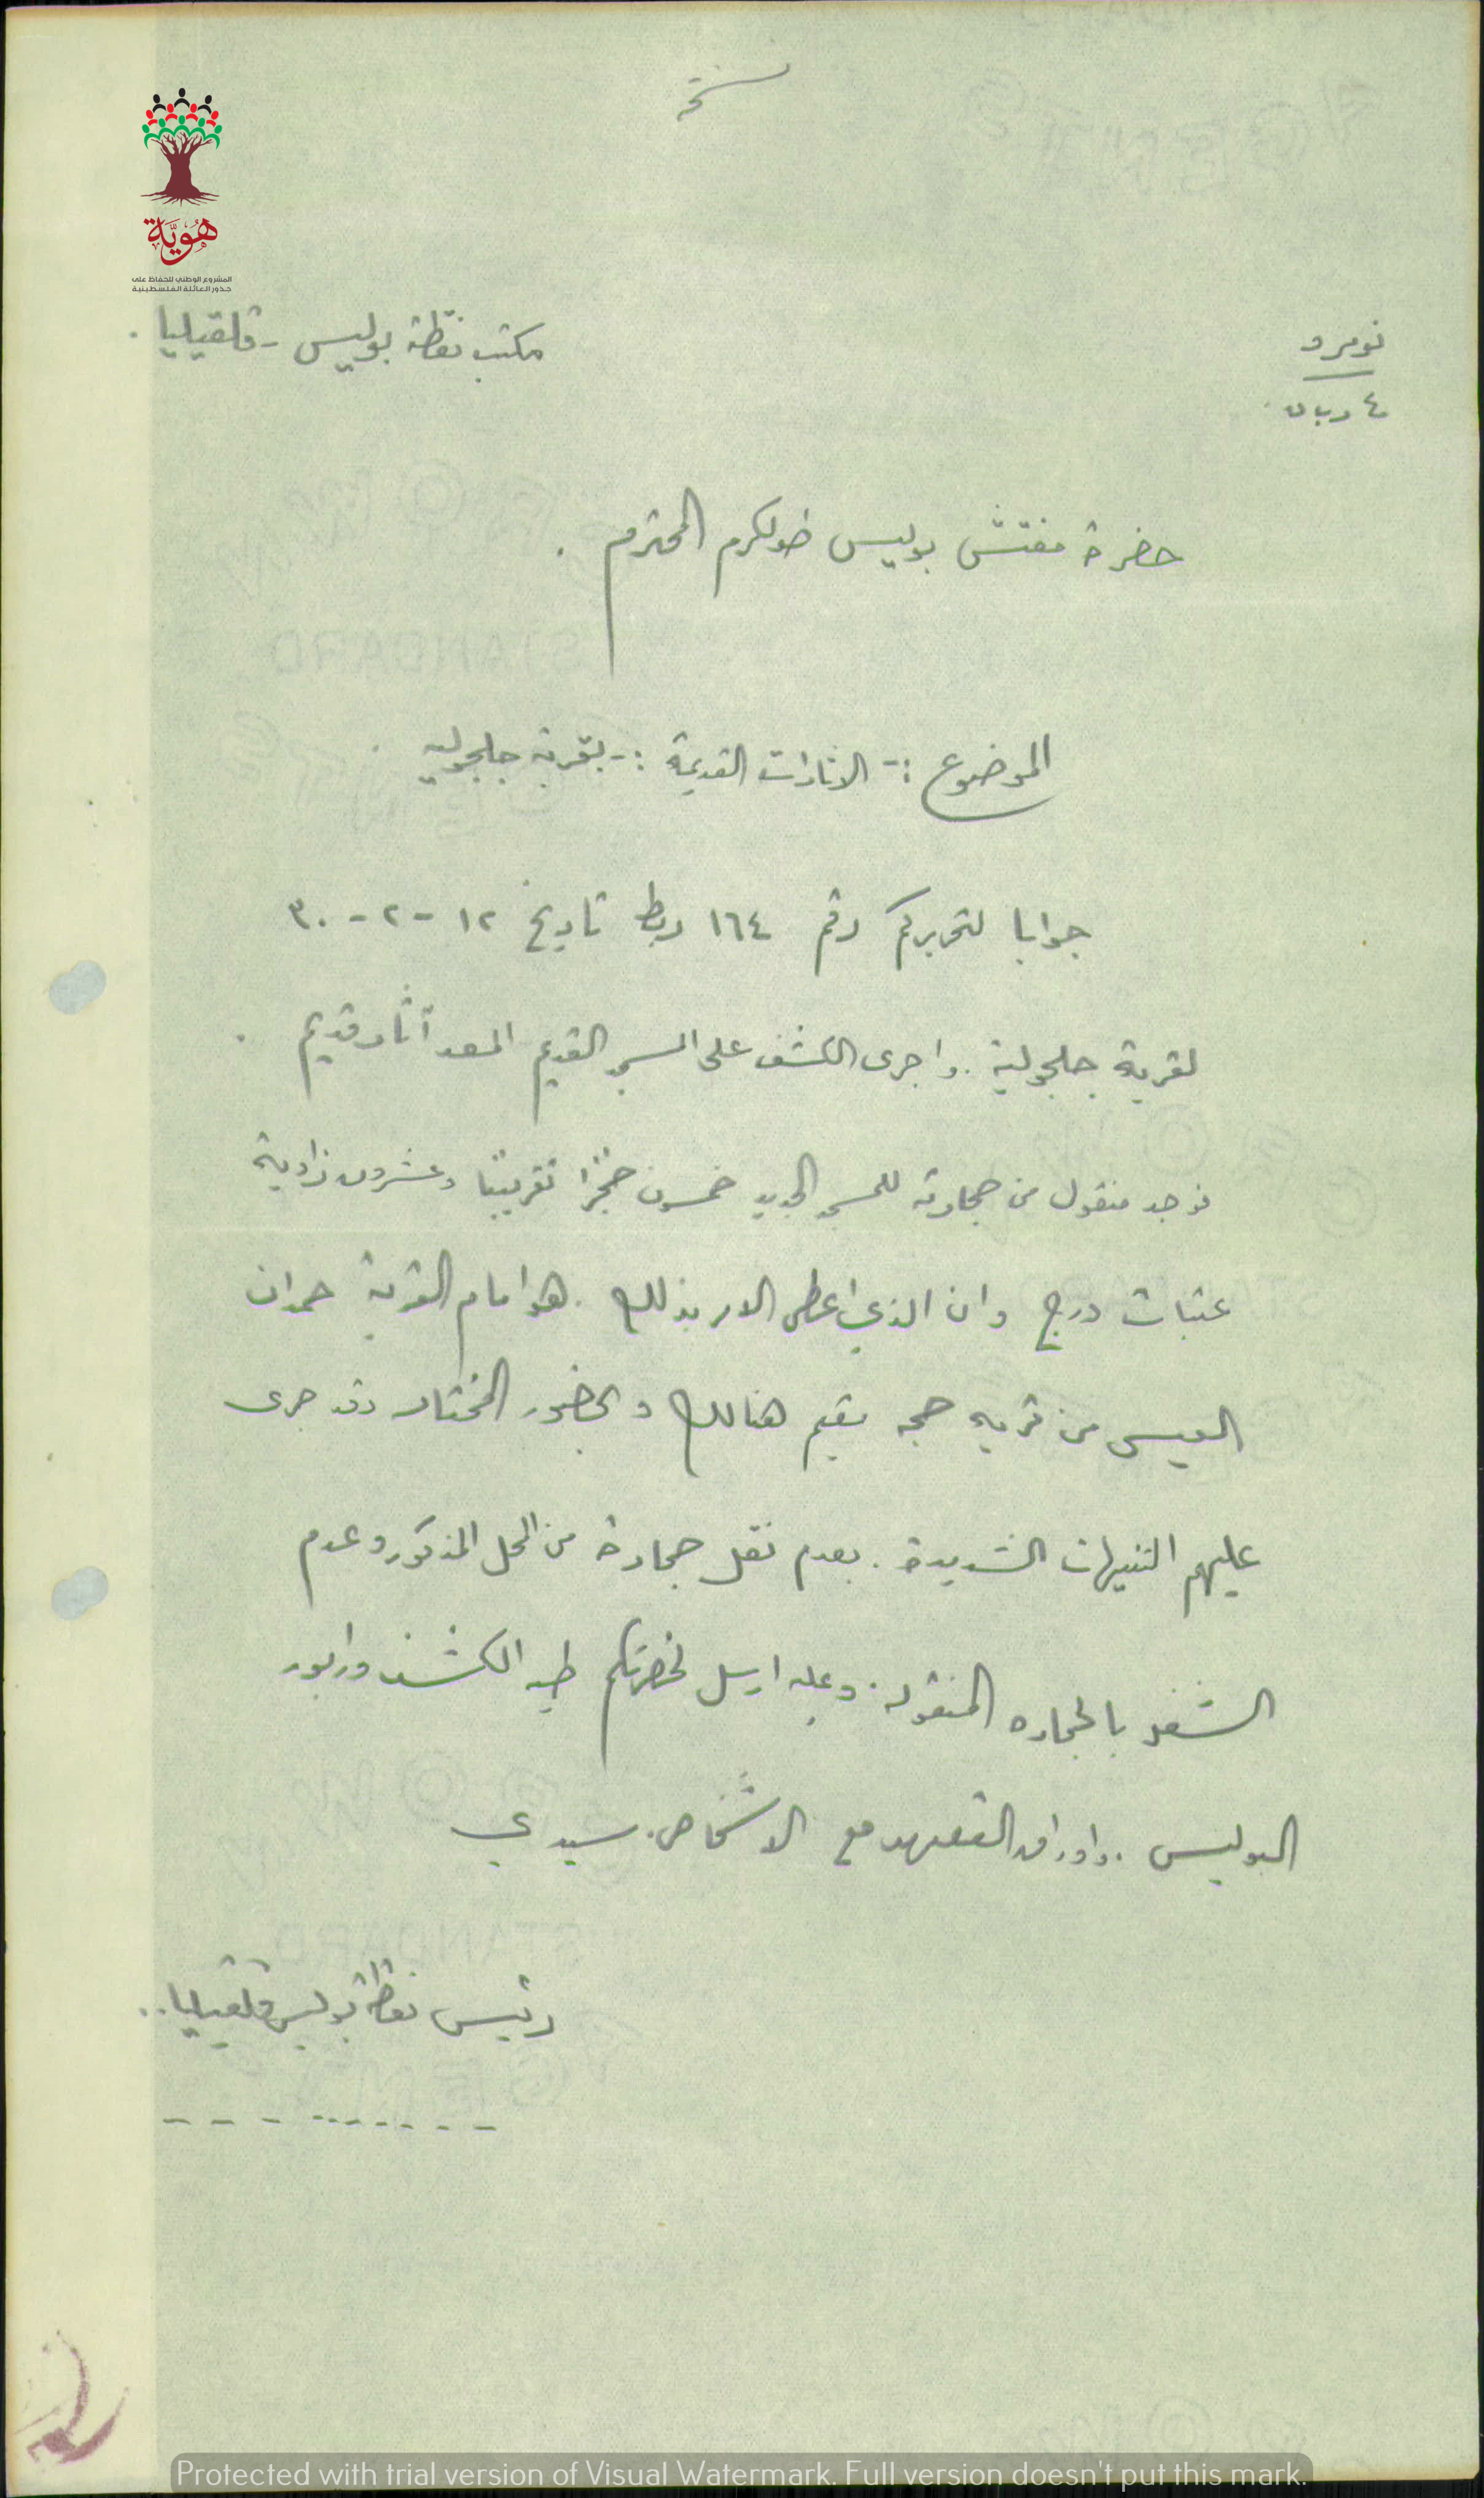 نسخة
هُويَّة
المشروع الوطني للحفاظ على
جذور العائلة الفلسطينية
نومرو
مكتب نقطة بوليس - قلقيليا .
حضرة مفتش بوليس طولكرم المحترم .
الموضوع :- الاثارات القديمة :- بقرية جلجوليه .
جوابا لتحريركم رقم ١٦٤ ربط تاريخ ١٢ - ٢ - ٣٠
لقرية جلجولية . واجرى الكشف على المسجد القديم المعد آثار قديم .
فوجد منقول من حجارته للمسجد الجديد خمسون حجرًا تقريبًا وعشرون زاوية
عتبات درج وان الذي اعطى الامر بذلك . هو امام القرية حمدان
العيسى من قريه حجه مقيم هنالك وبحضور المختار وقد جرى
عليهم التنبيهات الشديدة . بعدم نقل حجارة من المحل المذكور وعدم
الشغل بالحجاره المنقوله . وعليه ارسل لحضرتكم طيه الكشف ورابور
البوليس . واوراق التعهد مع الاشخاص . سيدي
رئيس نقطة بوليس قلقيليا ..
Protected with trial version of Visual Watermark. Full version doesn't put this mark.